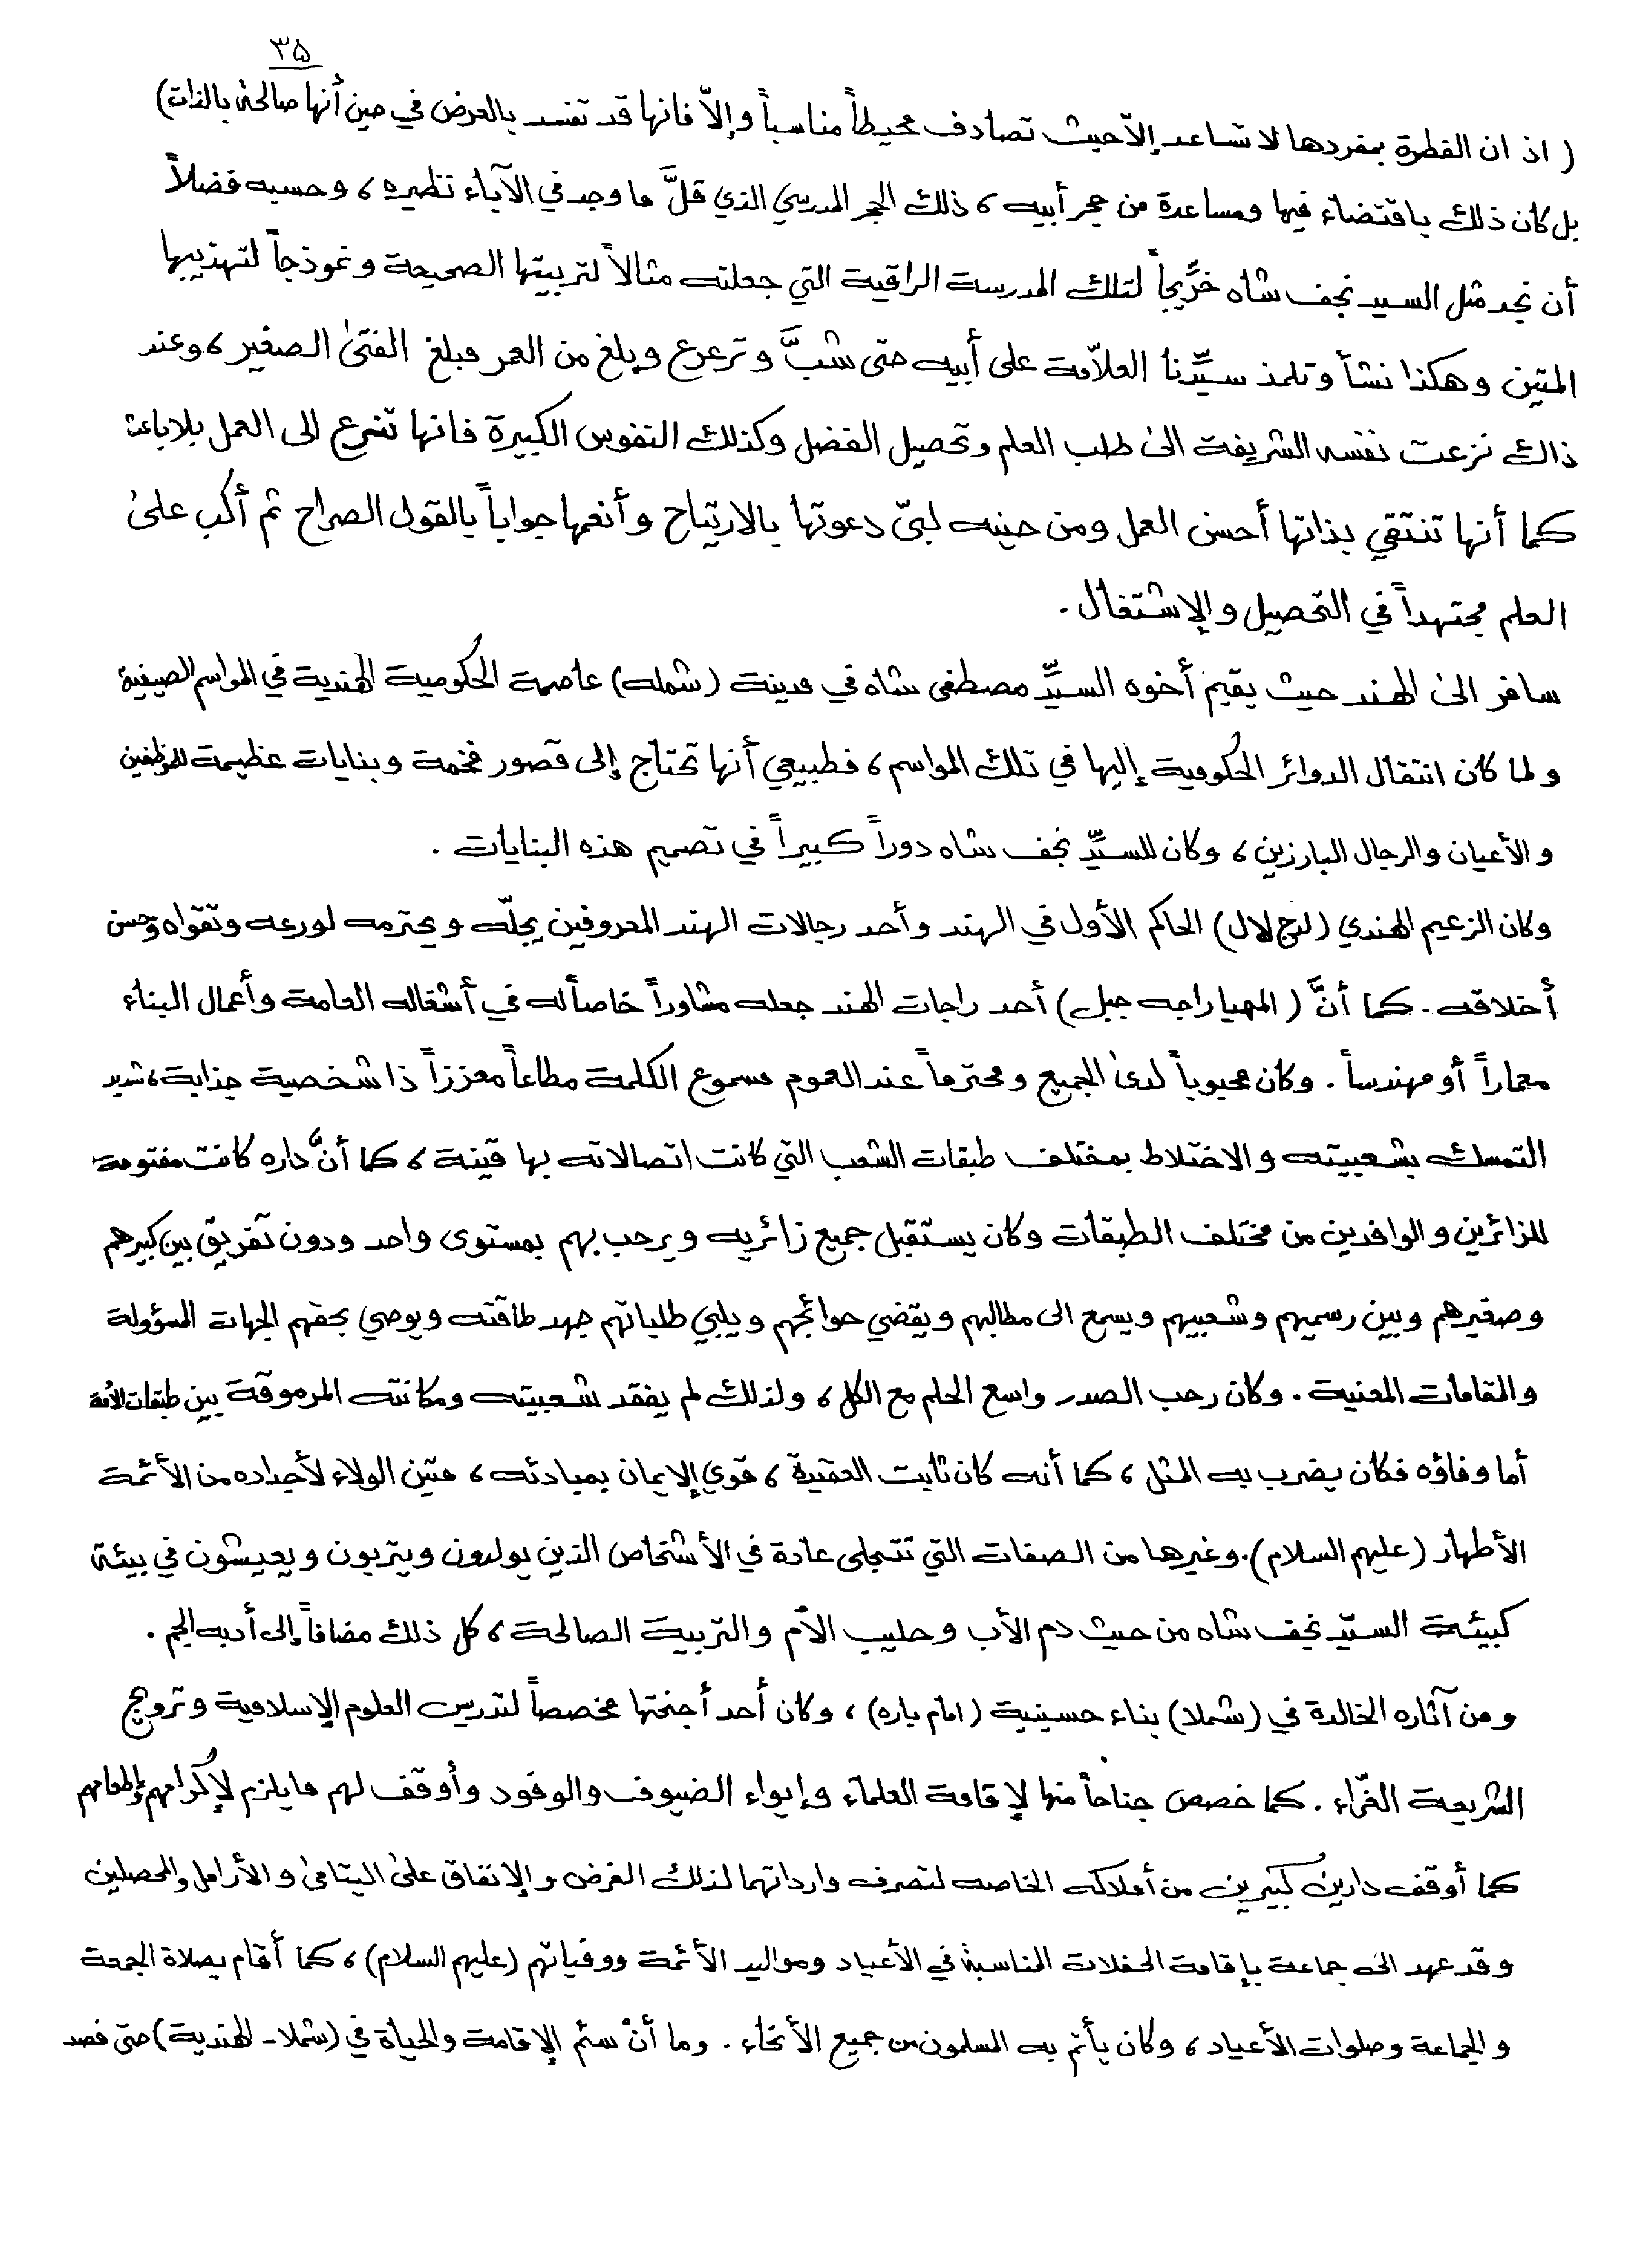 ٣٥
( اذ ان الفطرة بمفردها لا تساعد إلاّ حيث تصادف محيطاً مناسباً وإلاّ فانها قد تفسد بالعرض في حين أنها صالحة بالذات)
بل كان ذلك باقتضاء فيها ومساعدة من حجر أبيه ، ذلك الحجر المدرسي الذي قلَّ ما وجد في الآباء نظيره ، وحسبه فضلاً
أن نجد مثل السيد نجف شاه خرِّيجاً لتلك المدرسة الراقية التي جعلته مثالاً لتربيتها الصحيحة ونموذجاً لتهذيبها
المتين وهكذا نشأ وتلمذ سيِّدنا العلاّمة على أبيه حتى شبَّ وترعرع وبلغ من العمر مبلغ الفتىٰ الصغير ، وعند
ذاك نزعت نفسه الشريفة الىٰ طلب العلم وتحصيل الفضل وكذلك النفوس الكبيرة فانها تسرع الى العمل بلا باعث
كما أنها تنتقي بذاتها أحسن العمل ومن حينه لبىّ دعوتها بالارتياح وأنعمها جواباً بالقول الصراح ثم أكب علىٰ
العلم مجتهداً في التحصيل والإشتغال .
سافر الىٰ الهند حيث يقيم أخوه السيِّد مصطفى شاه في مدينة (شمله) عاصمة الحكومية الهندية في المواسم الصيفية
ولما كان انتقال الدوائر الحكومية إليها في تلك المواسم ، فطبيعي أنها تحتاج إلى قصور فخمة وبنايات عظيمة للموظفين
والأعيان والرجال البارزين ، وكان للسيِّد نجف شاه دوراً كبيراً في تصميم هذه البنايات .
وكان الزعيم الهندي (لنج لال) الحاكم الأول في الهند وأحد رجالات الهند المعروفين يجلّه ويحترمه لورعه وتقواه وحسن
أخلاقه . كما أنَّ ( المهياراجه جبل) أحد راجات الهند جعله مشاوراً خاصاً له في أشغاله العامة وأعمال البناء
معماراً أو مهندساً . وكان محبوباً لدىٰ الجميع ومحترماً عند العموم مسموع الكلمة مطاعاً معززاً ذا شخصية جذابة ، شديد
التمسك بشعبيته والاختلاط بمختلف طبقات الشعب التي كانت اتصالاته بها متينة ، كما أنَّ داره كانت مفتوحة
للزائرين والوافدين من مختلف الطبقات وكان يستقبل جميع زائريه ويرحب بهم بمستوى واحد ودون تفريق بين كبيرهم
وصغيرهم وبين رسميهم وشعبيهم ويسمع الى مطالبهم ويقضي حوائجهم ويلبي طلباتهم جهد طاقته ويوصي بحقهم الجهات المسؤولة
والمقامات المعنية . وكان رحب الصدر واسع الحلم مع الكل ، ولذلك لم يفقد شعبيته ومكانته المرموقة بين طبقات الأمة
أما وفاؤه فكان يضرب به المثل ، كما أنه كان ثابت العقيدة ، قوي الإيمان بمبادئه ، متين الولاء لأجداده من الأئمة
الأطهار (عليهم السلام) . وغيرها من الصفات التي تتجلى عادة في الأشخاص الذين يولدون ويتربون ويعيشون في بيئة
كبيئة السيّد نجف شاه من حيث دم الأب وحليب الأم والتربية الصالحة ، كل ذلك مضافاً إلى أدبه الجم .
ومن آثاره الخالدة في (شملا) بناء حسينية (امام باره) ، وكان أحد أجنحتها مخصصاً لتدريس العلوم الإسلامية وترويج
الشريعة الغرّاء . كما خصص جناحاً منها لإقامة العلماء وإيواء الضيوف والوفود وأوقف لهم ما يلزم لإكرامهم وإطعامهم
كما أوقف دارين كبيرين من أملاكه الخاصه لتصرف وارداتهما لذلك الغرض والإنفاق علىٰ اليتامىٰ والأرامل والمحصلين
وقد عهد الى جماعة بإقامة الحفلات المناسبة في الأعياد ومواليد الأئمة ووفياتهم (عليهم السلام) ، كما أقام بصلاة الجمعة
والجماعة وصلوات الأعياد ، وكان يأتم به المسلمون من جميع الأنحاء . وما أنْ سئم الإقامة والحياة في (شملا - الهندية) حتى قصد